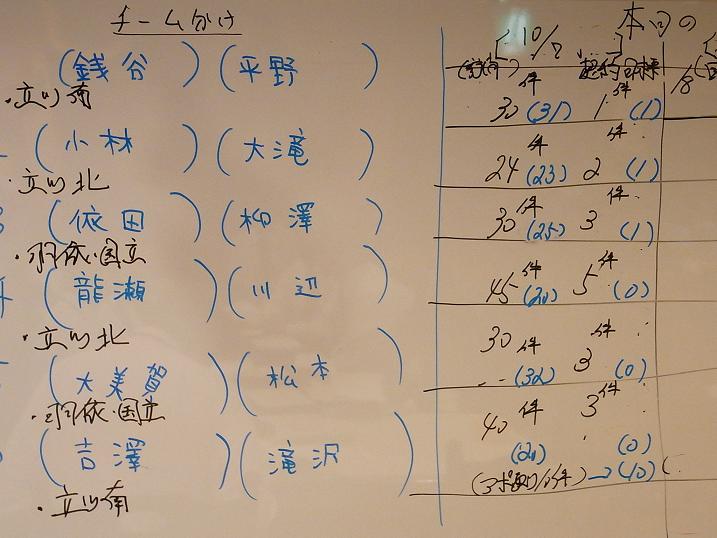 チーム分け
本回の
10/7
(銭谷)(平野 )
件 件
・立川南
30(31) 1(1)
(小林 )(大滝 )
件 件
24(23) 2(1)
・立川北
(依田 )(柳澤 )
件 件
30(25) 3(1)
・羽依・国立
(龍瀬 )(川辺 )
件 件
45(20) 5(0)
・立川北
30件 3件
(大美賀 )(松本 )
(32) (0)
・羽依・国立
40件 3件
(吉澤 )(滝沢 )
(0)
→(10)
・立川南